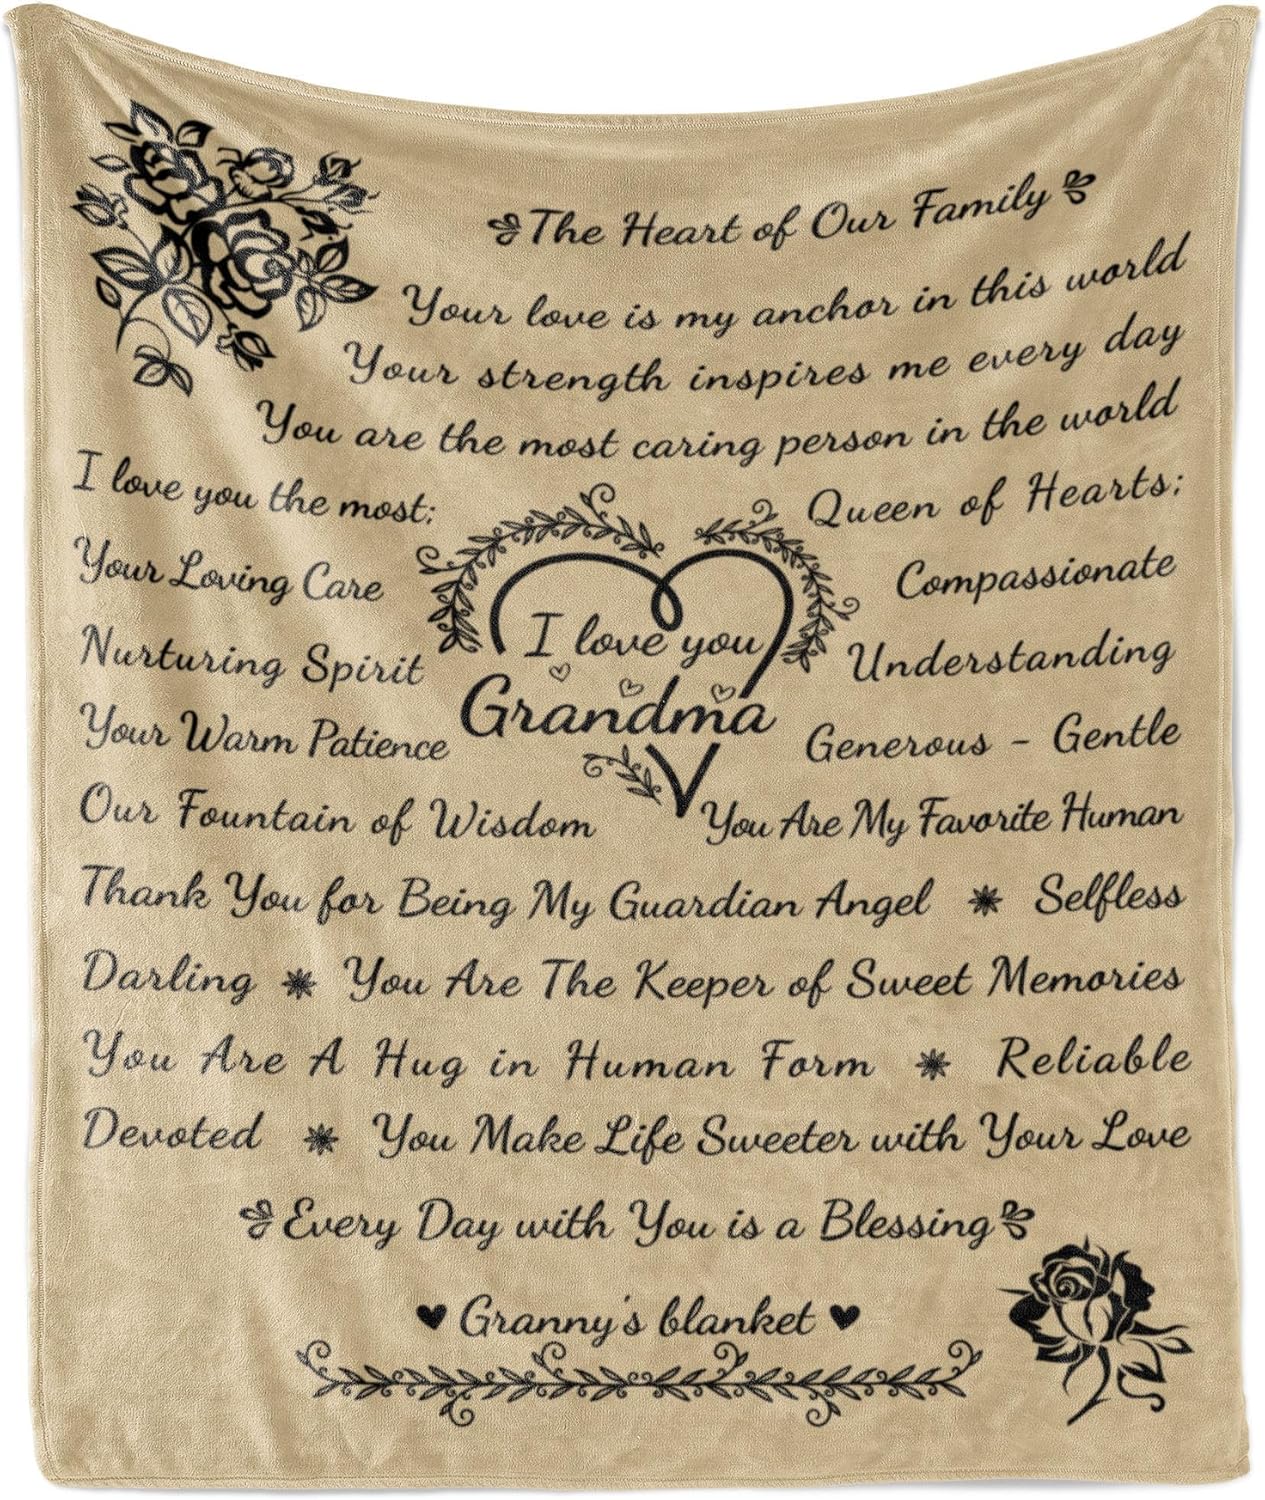 The Heart of Our Family
Your love is my anchor in this world
Your strength inspires me every day
You are the most caring person in the world
I love you the most:
Queen of Hearts:
Your Loving Care
Compassionate
I love you
Nurturing Spirit
Understanding
Grandma
Your Warm Patience
Generous - Gentle
Our Fountain of Wisdom
You Are My Favorite Human
Thank You for Being My Guardian Angel ✵ Selfless
Darling ✵ You Are The Keeper of Sweet Memories
You Are A Hug in Human Form ✵ Reliable
Devoted ✵ You Make Life Sweeter with Your Love
Every Day with You is a Blessing
♥ Granny's blanket ♥